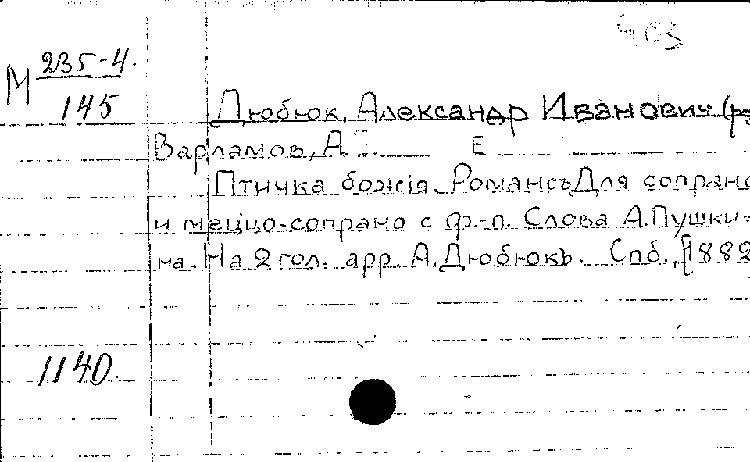 М 235-4.
145
Дюбюк, Александр Иванович
Варламов, А. Е
Птичка божія. Романсъ Для сопрано
и меццо-сопрано с ф.-п. Слова А. Пушки-
на. На 2 гол. арр. А. Дюбюкъ. Спб., [1882
1140.